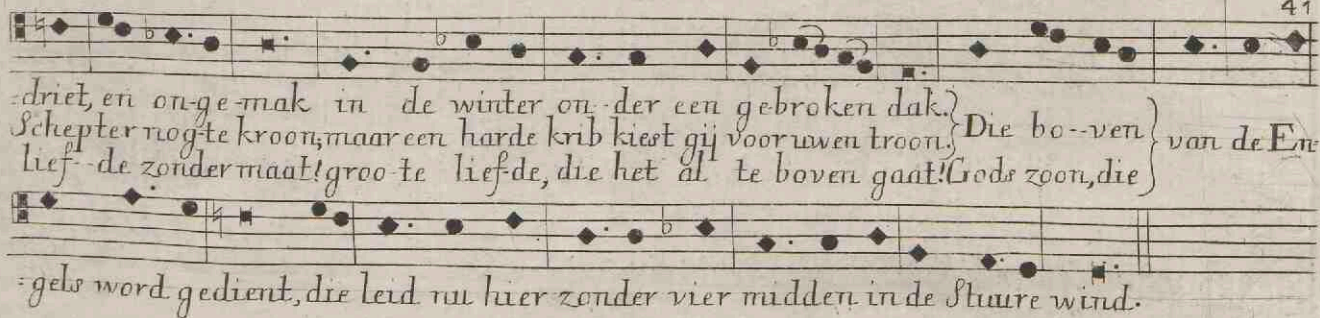 41
:driet, en on-ge-mak in de winter on-der een gebroken dak.}
Schepter nog-te kroon; maar een harde krib kiest gij voor uwen troon.} Die bo--ven } van de En-
lief--de zonder maat! groo-te lief-de, die het al te boven gaat! Gods zoon, die }
:gels word gedient, die leid nu hier zonder vier midden in de Stuure wind.